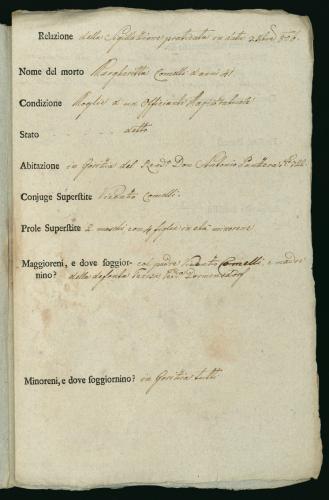 Relazione della Sigillazione praticata in dato 2 806.
Nome del morto Margheritta Comelli d'anni 41.
Condizione Moglie d un Officiante Magistratuale
Stato detto
Abitazione in Goritia del Revdo Don Antonio
Conjuge Superstite Vicenzo Comelli.
Prole Superstite 2 maschi con 4 figlie in età minorene
Maggioreni, e dove soggior- col padre Vicenzo Comelli e madre
nino? della defonta
Minoreni, e dove soggiornino? in Goritia tutti